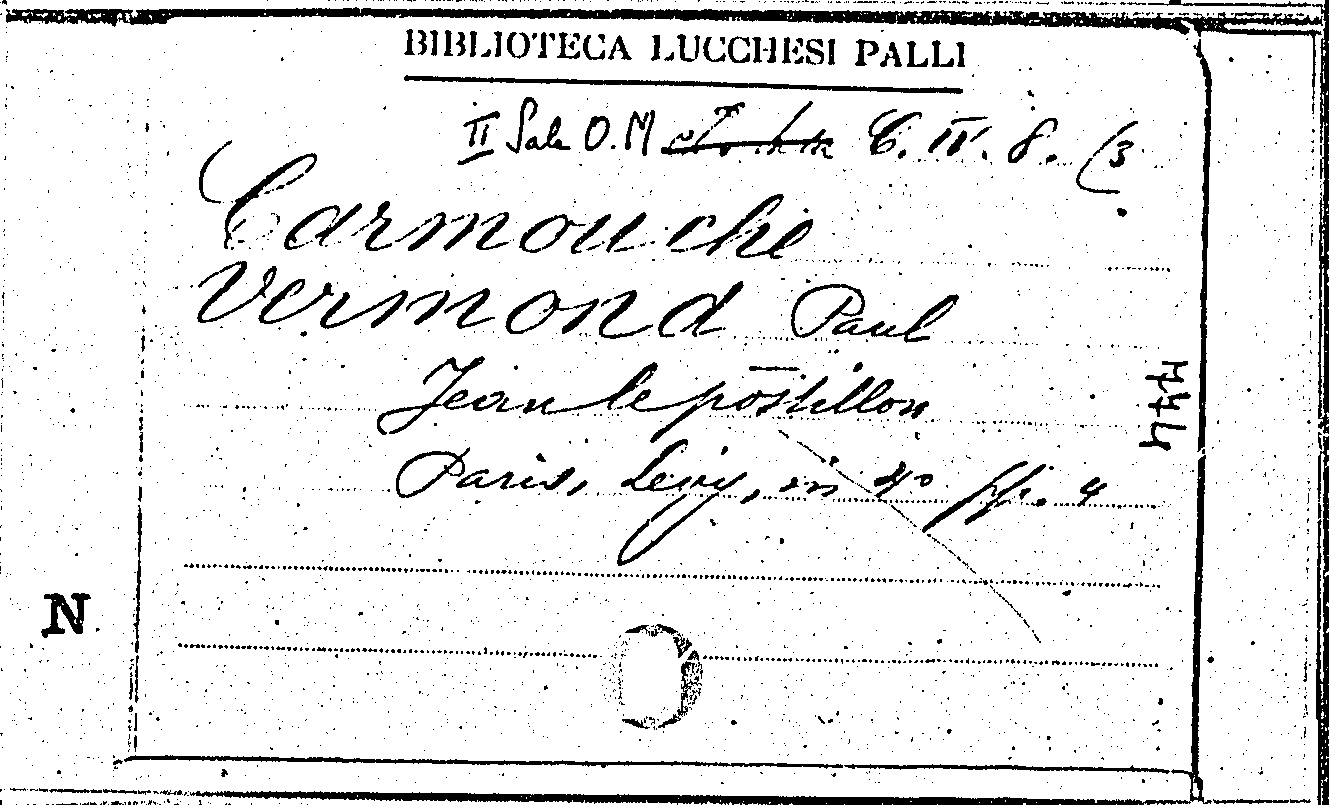 BIBLIOTECA LUCCHESI PALLI
II Sala O.M C. IV. 8. (3
Carmouche
Vermond Paul
Jean le postillon
Paris, Lévy, in 4° pp. 4
444
N